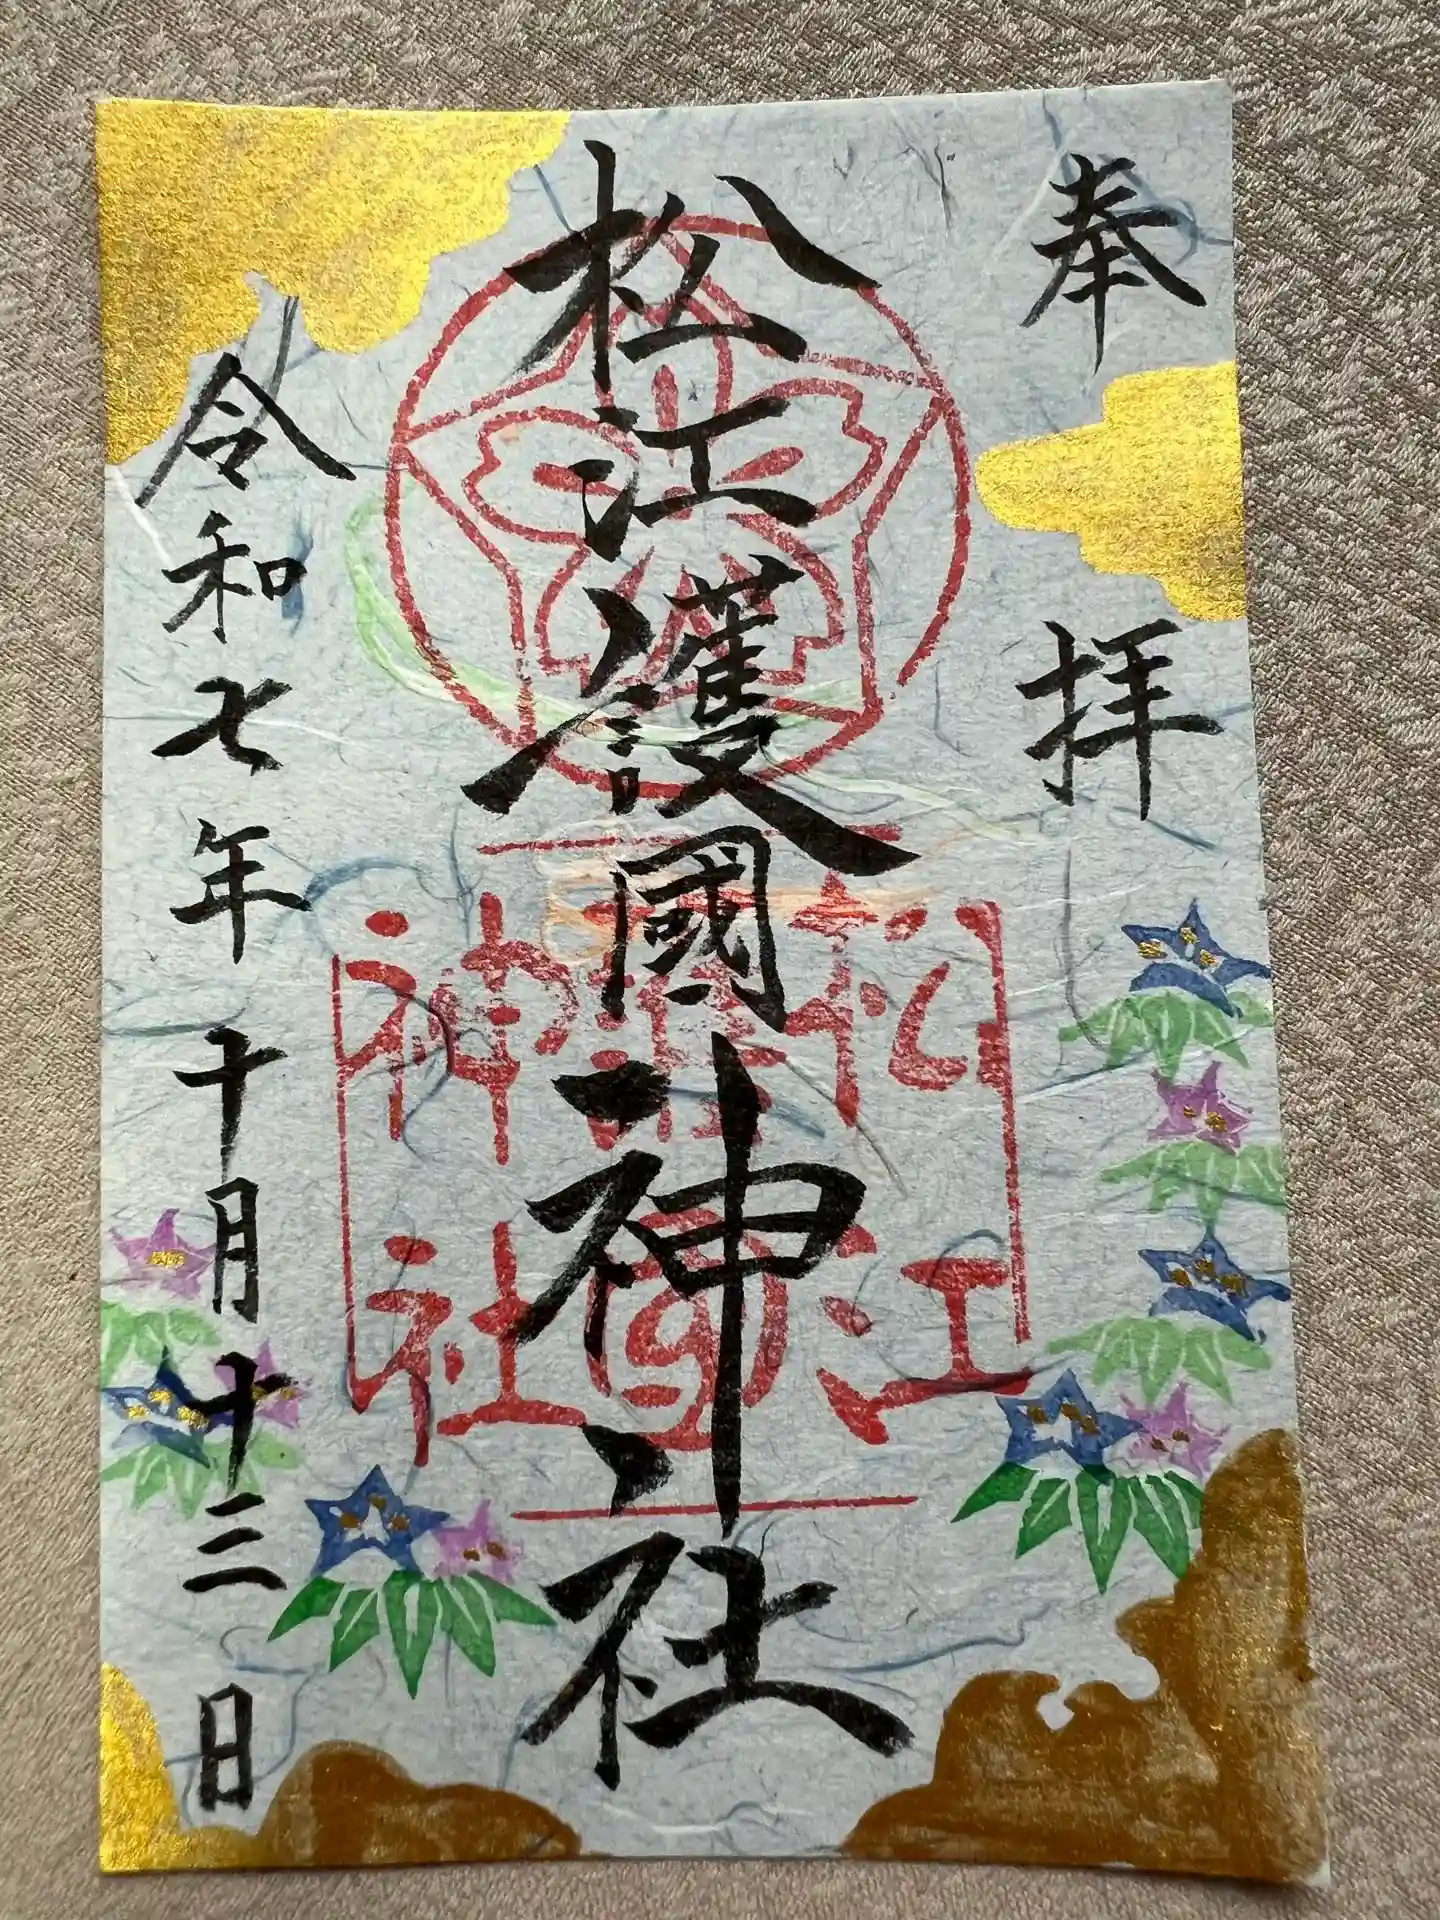 奉拝
松江護國神社
松江
護國
神社
令和七年十月十三日